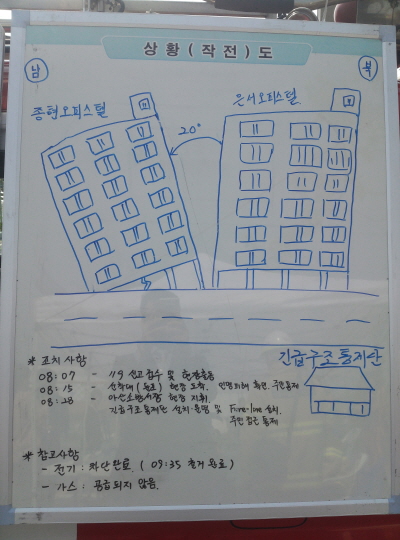 상황(작전)도
남
북
종현오피스텔
은서오피스텔
20°
긴급구조통제단
* 조치사항
08:07 - 119 신고접수 및 현장출동
08:15 - 선착대(둔포) 현장 도착, 인명피해 확인, 주민통제
08:28 - 아산소방서장 현장 지휘,
긴급구조통제단 설치·운영 및 Fire-line 설치,
주민 접근 통제
* 참고사항
- 전기 : 차단완료. (09:35 철거 완료)
- 가스 : 공급되지 않음.